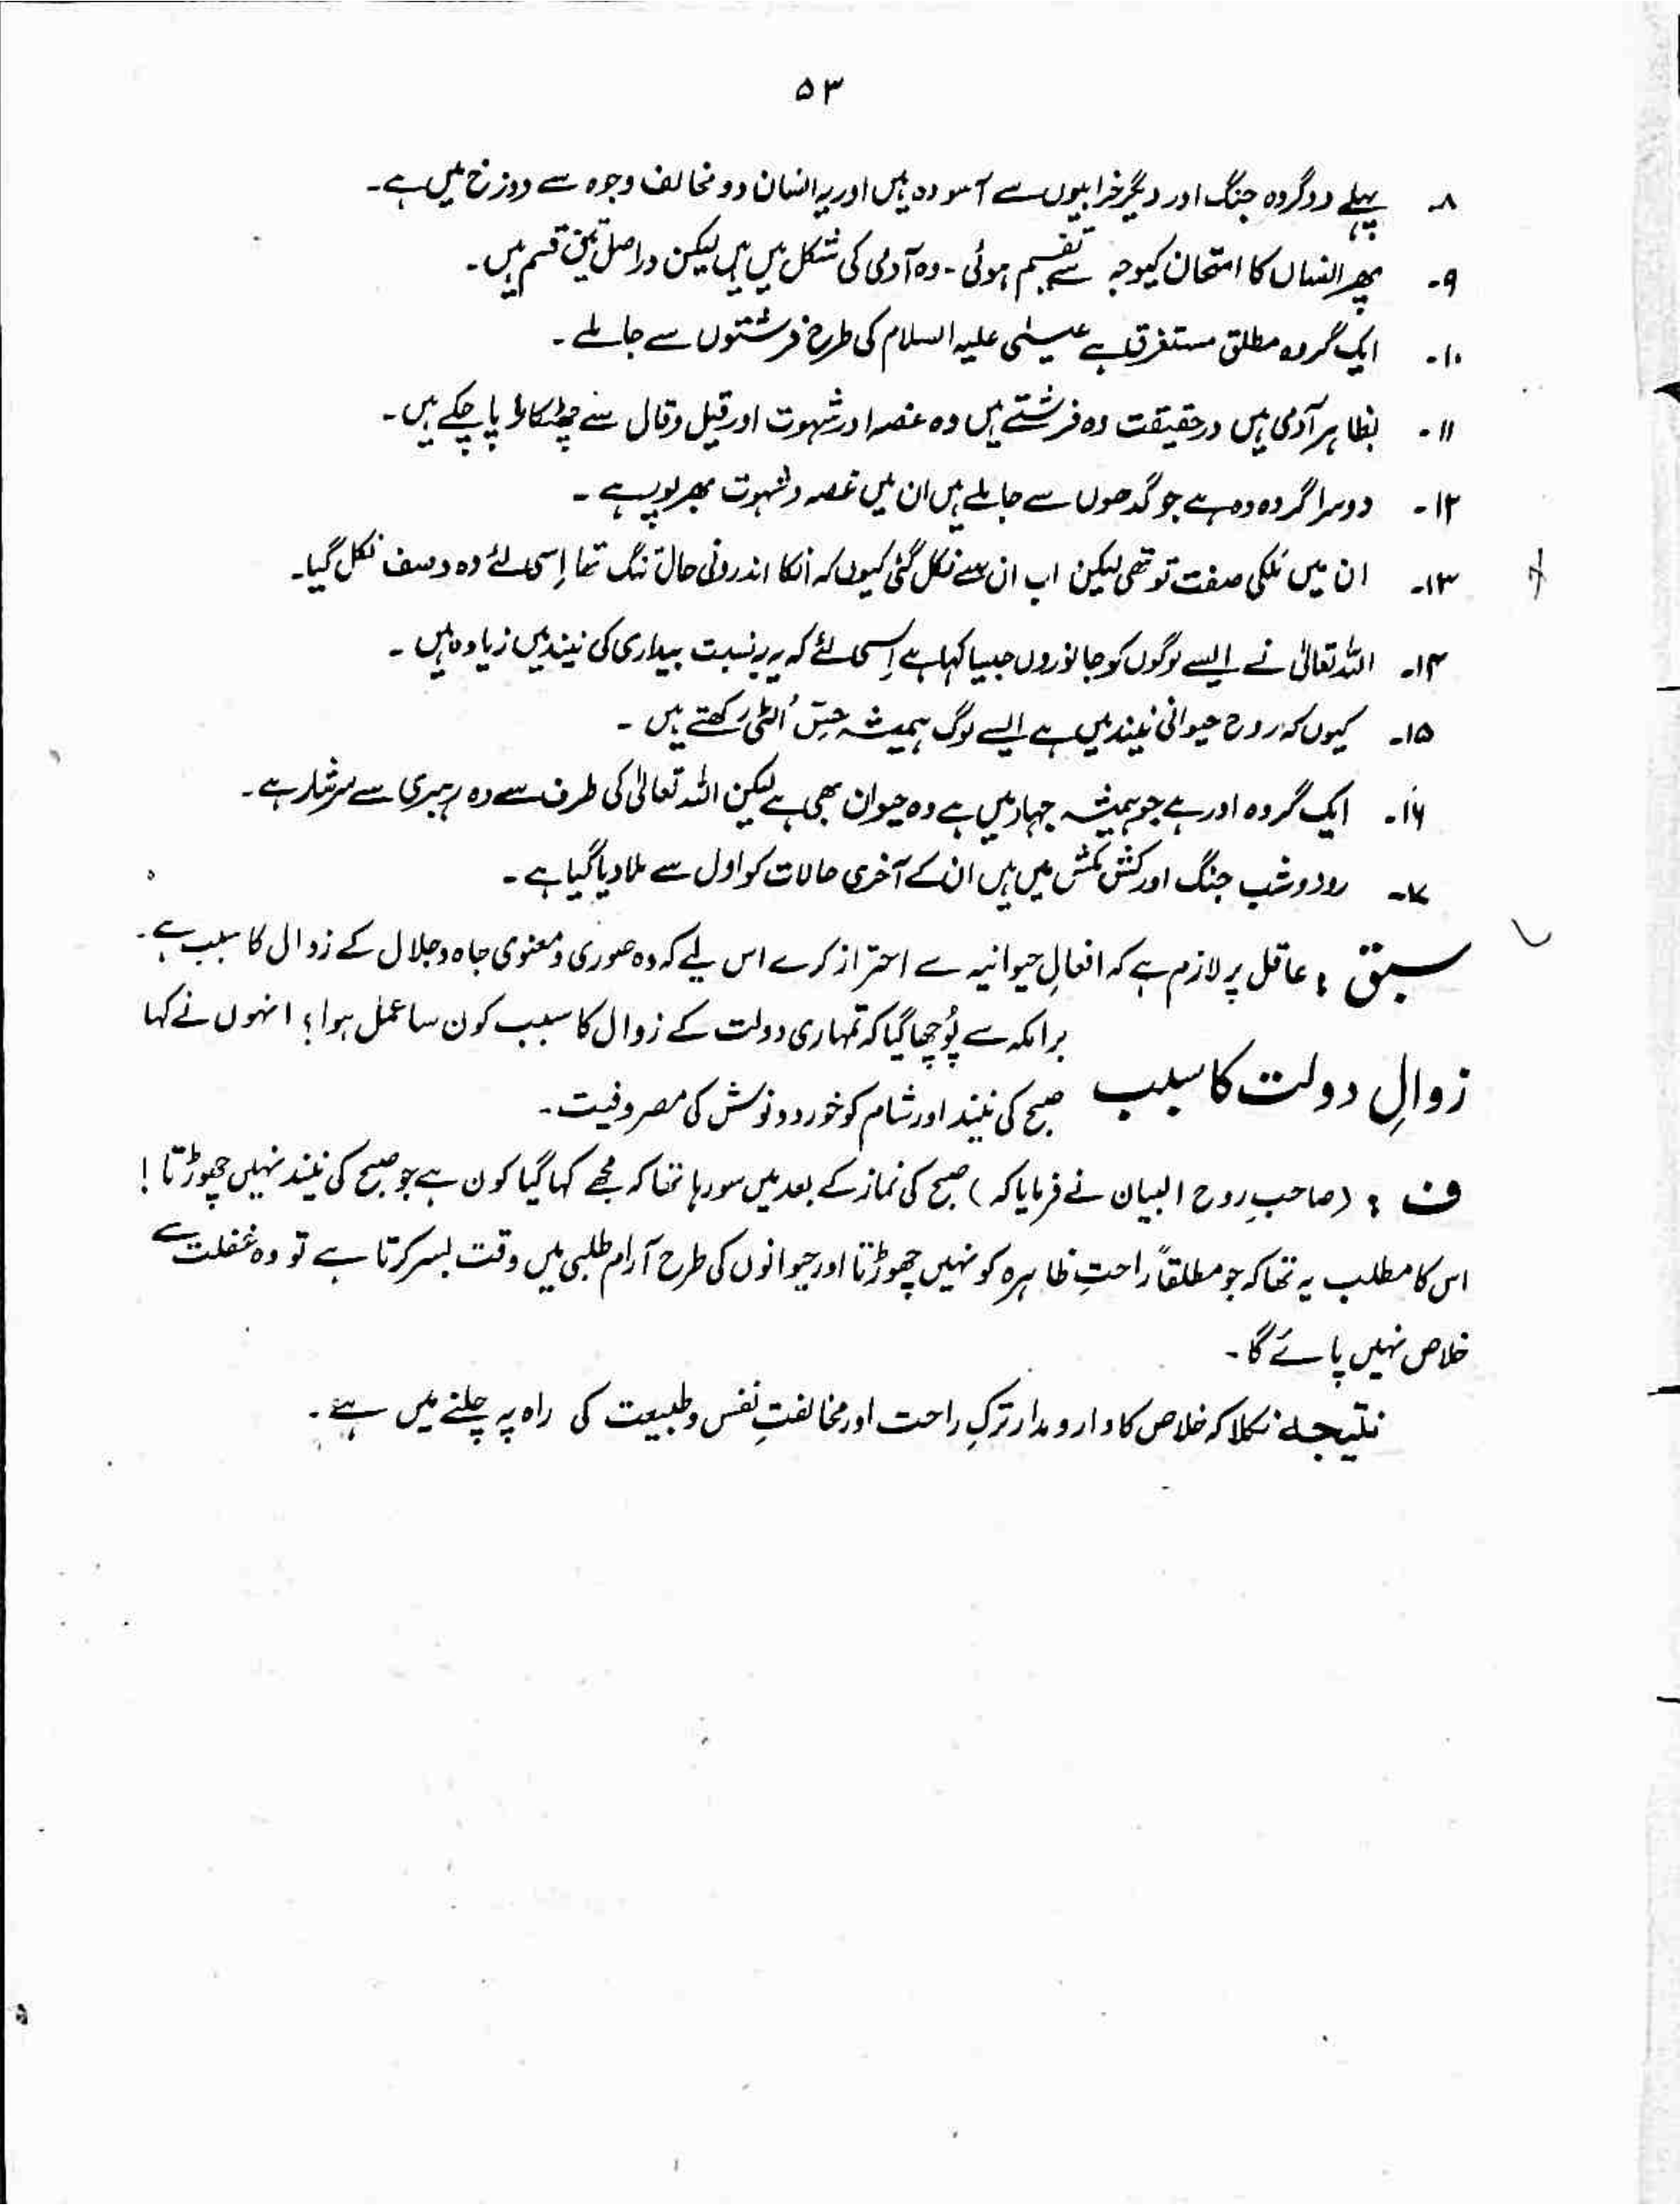 ۵۳
۸۔ پہلے دو گروہ جنگ اور دیگر خرابیوں سے آسودہ ہیں اور یہ انسان دو مخالف وجوہ سے دوزخ میں ہے۔
۹۔ پھر انساں کا امتحان کیوجہ سے تقسیم ہوئی۔ وہ آدمی کی شکل میں ہیں لیکن دراصل تین قسم ہیں۔
۱۰۔ ایک گروہ مطلق مستغرق ہے عیسٰی علیہ السلام کی طرح فرشتوں سے جاملے۔
۱۱۔ بظاہر آدمی ہیں درحقیقت وہ فرشتے ہیں وہ غصہ اور شہوت اور قیل وقال سے چھٹکارا پا چکے ہیں۔
۱۲۔ دوسرا گروہ وہ ہے جو گدھوں سے جاملے ہیں ان میں غصہ و شہوت بھرپور ہے۔
۱۳۔ ان میں مَلکی صفت تو تھی لیکن اب ان سے نکل گئی کیوں کہ انکا اندرونی حال تنگ تھا اِسی لئے وہ وصف نکل گیا۔
۱۴۔ اللہ تعالٰی نے ایسے لوگوں کو جانوروں جیسا کہا ہے اِسی لئے کہ یہ بہ نسبت بیداری کی نیند میں زیادہ ہیں۔
۱۵۔ کیوں کہ روح حیوانی نیند میں ہے ایسے لوگ ہمیشہ حِسّ اُلٹی رکھتے ہیں۔
۱۶۔ ایک گروہ اور ہے جو ہمیشہ جہاد میں ہے وہ حیوان بھی ہے لیکن اللہ تعالٰی کی طرف سے وہ رہبری سے سرشار ہے۔
۱۷۔ روز و شب جنگ اور کش مکش میں ہیں ان کے آخری حالات کو اول سے ملا دیا گیا ہے۔
سبق : عاقل پر لازم ہے کہ افعالِ حیوانیہ سے احتراز کرے اس لیے کہ وہ صوری و معنوی جاہ و جلال کے زوال کا سبب ہے۔
زوالِ دولت کا سبب برامکہ سے پُوچھا گیا کہ تمہاری دولت کے زوال کا سبب کون سا عمل ہوا؟ انہوں نے کہا
صبح کی نیند اور شام کو خورد و نوش کی مصروفیت۔
ف : (صاحبِ روح البیان نے فرمایا کہ) صبح کی نماز کے بعد میں سو رہا تھا کہ مجھے کہا گیا کون ہے جو صبح کی نیند نہیں چھوڑتا!
اس کا مطلب یہ تھا کہ جو مطلقاً راحتِ ظاہرہ کو نہیں چھوڑتا اور حیوانوں کی طرح آرام طلبی میں وقت بسر کرتا ہے تو وہ غفلت سے
خلاص نہیں پائے گا۔
نتیجہ نکلا کہ خلاص کا دار و مدار ترکِ راحت اور مخالفتِ نفس و طبیعت کی راہ پہ چلنے میں ہے۔